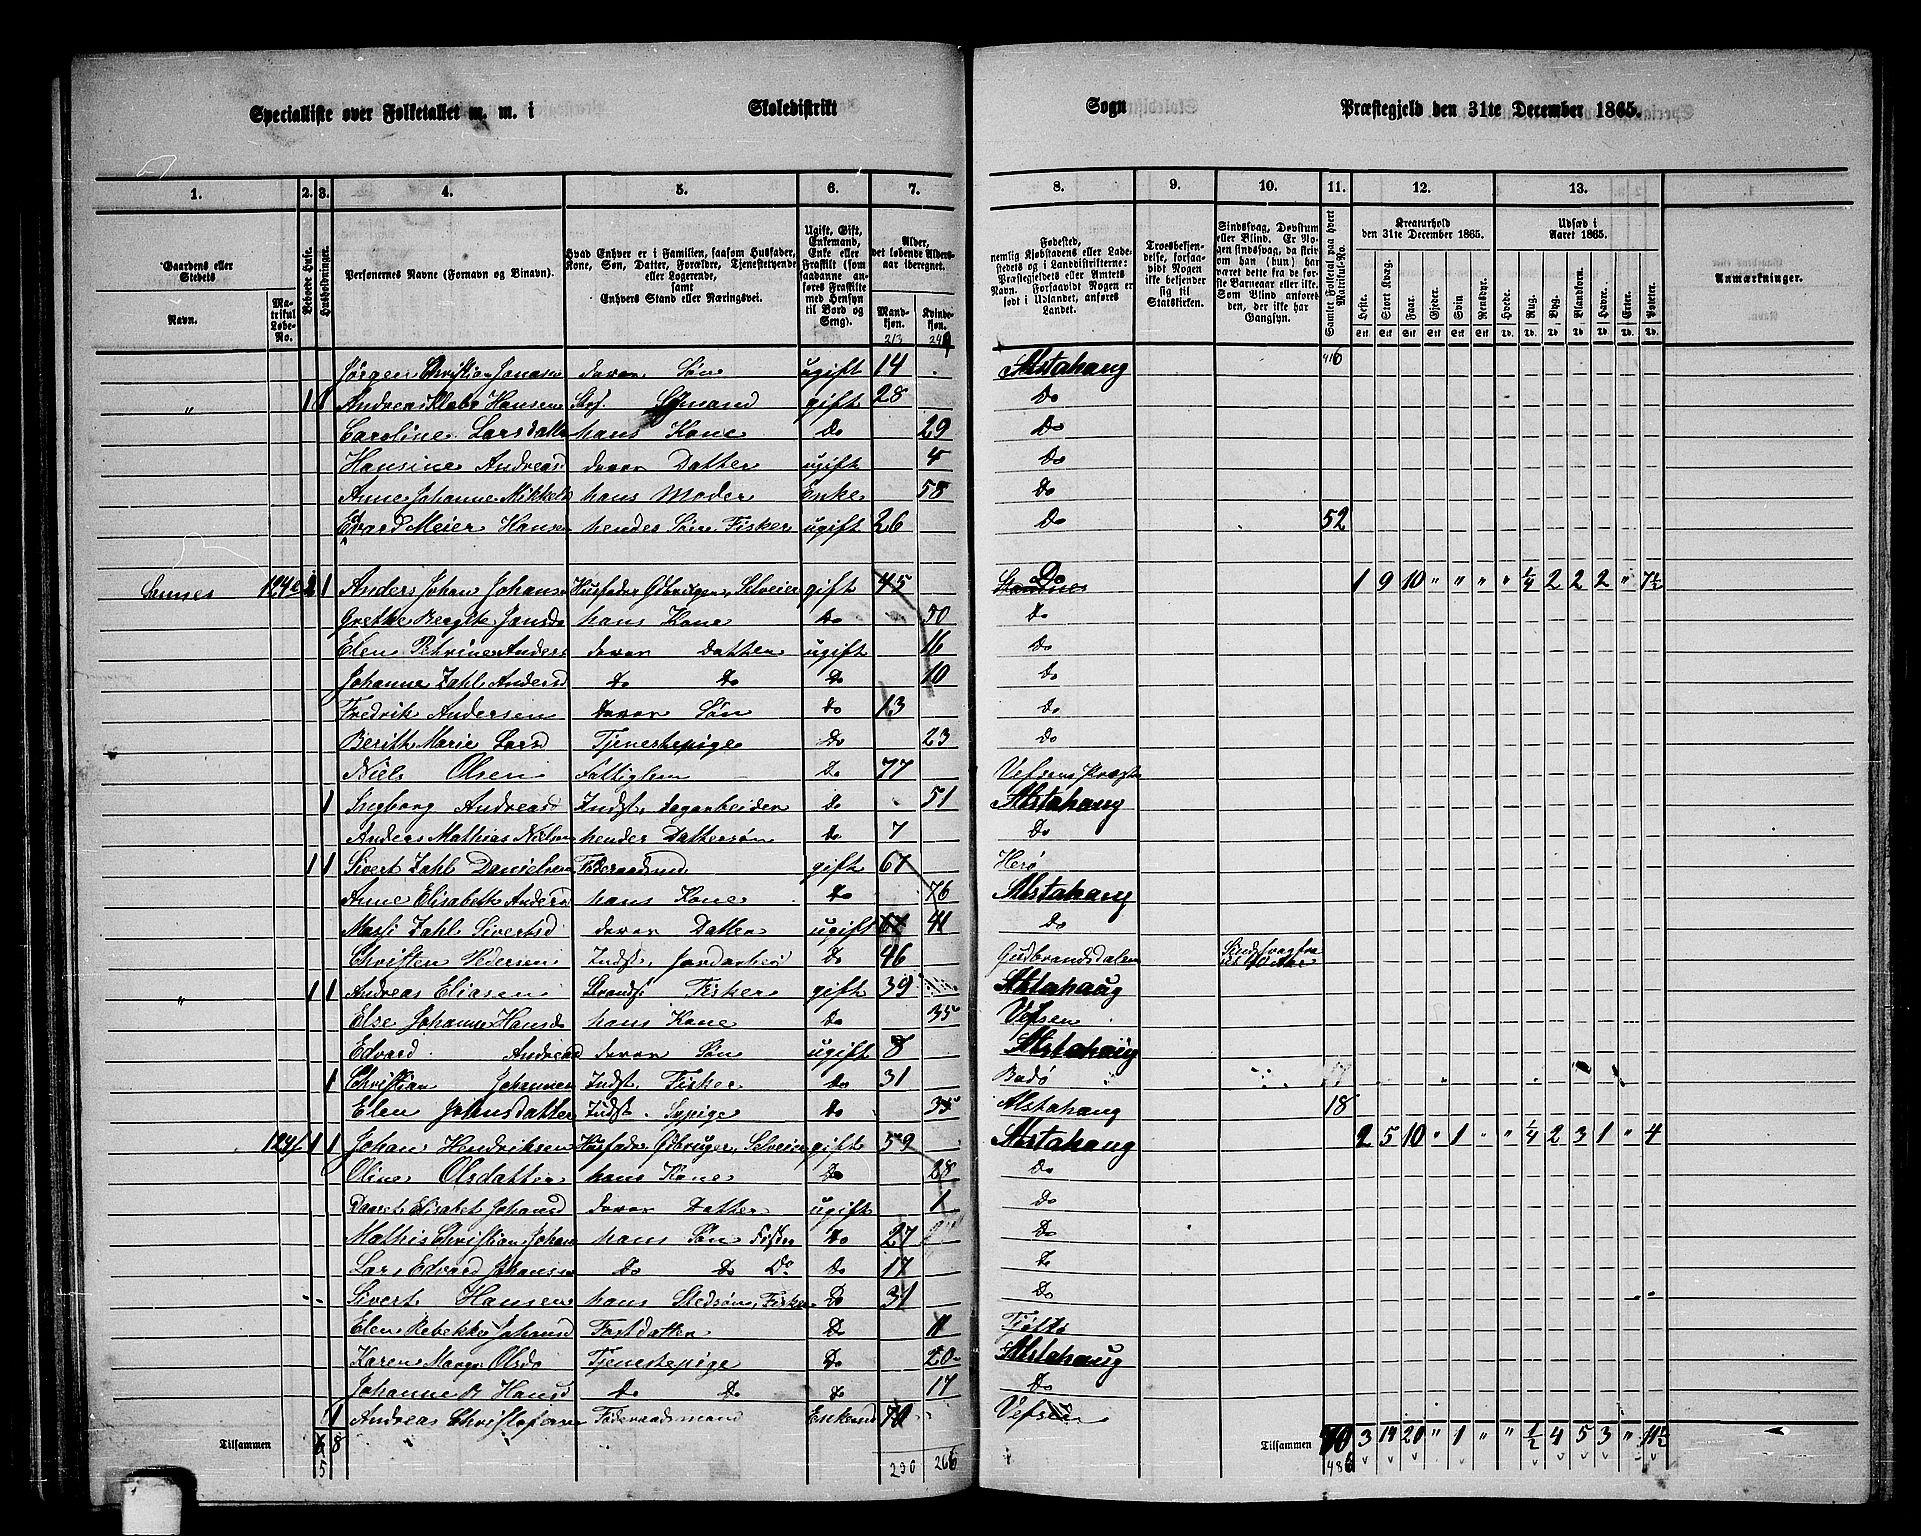 Specialliste over Folketallet m. m. i Skoledistrikt Sogn Præstegjeld den 31te December 1865.
1. 2. 3. 4. 5. 6. 7. 8. 9. 10. 11. 12. 13.
Gaardens eller Stedets Navn. Matrikul Løbe-No. Beboede Huse. Husholdninger. Personernes Navne (Fornavn og Binavn). Hvad Enhver er i Familien, saasom Husfader, Kone, Søn, Datter, Forældre, Tjenestetyende eller Logerende, samt Enhvers Stand eller Næringsvei. Ugift, Gift, Enkemand, Enke eller Fraskilt (som saadanne anføres Fraskilte med Hensyn til Bord og Seng). Alder, det løbende Aldersaar iberegnet. Mandkjøn. Kvindekjøn. Fødested, nemlig Kjøbstadens eller Ladestedets og i Landdistrikterne: Præstegjeldets eller Amtets Navn. Forsaavidt Nogen er født i Udlandet, anføres Landet. Troesbekjendelse, forsaavidt Nogen ikke bekjender sig til Statskirken. Sindssvag, Døvstum eller Blind. Er Nogen sindssvag, da skrives om han (hun) har været dette fra de første Barneaar eller ikke. Som Blind anføres den, der ikke har Gangsyn. Samlet Folketal paa hvert Matrikul-No. Kreaturhold den 31te December 1865. Heste. Stort Kvæg. Faar. Gjeder. Svin. Rensdyr. Udsæd i Aaret 1865. Hvede. Rug. Byg. Blandkorn. Havre. Erter. Poteter. Anmærkninger.
213
Jørgen Christian Jonasen deres Søn ugift 14 Alstahaug 416
" 1 1 Andreas Klæbo Hansen gift 28 Do
Caroline Larsdatter hans Kone Do 29 Do
Hansine Andreasd deres Datter ugift 4 Do
Anne Johanne Nikkels hans Moder Enke 58 Do
Edvard Meier Hansen hendes Søn Fisker ugift 26 Do 52
Sannes 124 1 Anders Johan Johans Husfader Gdbruger, Selveier gift 45 Do 1 9 10 " " " " 1/4 2 2 2 " 7 1/2
Grethe Jansd hans Kone Do 50 Do
Elen Petrine Anders deres Datter ugift 16 Do
Johanne Zahl Andersd Do Do Do 10 Do
Fredrik Andersen deres Søn Do 13 Do
Berith Marie Larsd Tjenestepige Do 23 Do
Niels Olsen Fattiglem Do 77 Vefsens
1 Ingborg Andreasd Indst. dagarbeider Do 51 Alstahaug
Anders Mathias Nielsen hendes Dattersøn Do 7 Do
1 1 Sivert Zahl Danielsen gift 67 Herø
Anne Elisabeth Andersd hans Kone Do 76 Alstahaug
Zahl Sivertsd deres Datter ugift 41 Do
Christen Pedersen Indst. Jordarbei Do 46 Gudbrandsdalen
" 1 1 Andreas Eliasen Strands. Fisker gift 39 Alstahaug
Else Johanne Hansd hans Kone Do 35 Vefsen
Edvard Andreasd deres Søn ugift 8 Alstahaug
1 Christian Johannes Indst. Fisker Do 31 Bodø
Elen Johnsdatter Indst. Sypige Do 35 Alstahaug 18
124 1 1 Johan Hendriksen Husfader Gdbruger, Selveier gift 59 Alstahaug 2 5 10 " 1 " " 1/4 2 3 1 " 4
Oline Olsdatter hans Kone Do 28 Do
Elisabet Johansd deres Datter ugift 1 Do
Mathis Christian Johans hans Søn Fisker Do 27 Do
Lars Edvard Johansen Do Do Do Do 17 Do
Sivert Hansen hans Stedsøn, Fisker Do 31 Do
Elen Rebekka Johansd Fostdatter Do 11 Tjøtta
Karen Olsd Tjenestepige Do 20 Alstahaug
Johanne Hansd Do Do Do 17 Do
1 Andreas Christofersen Føderaadsmand Enkemd 70 Vefsen
Tilsammen 8 Tilsammen 3 14 20 " 1 " " 1/2 4 5 3 " 11 1/2
5 230 266 486